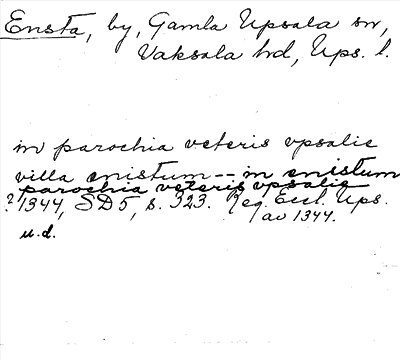 Ensta, by, Gamla Upsala sn,
Vaksala hd, Ups. l.
in parochia veteris vpsalie
villa enistum -- in enistum
parochia veteris vpsalie
? 1344, SD5, s. 323. Reg. Eccl. Ups.
av 1344.
u.d.